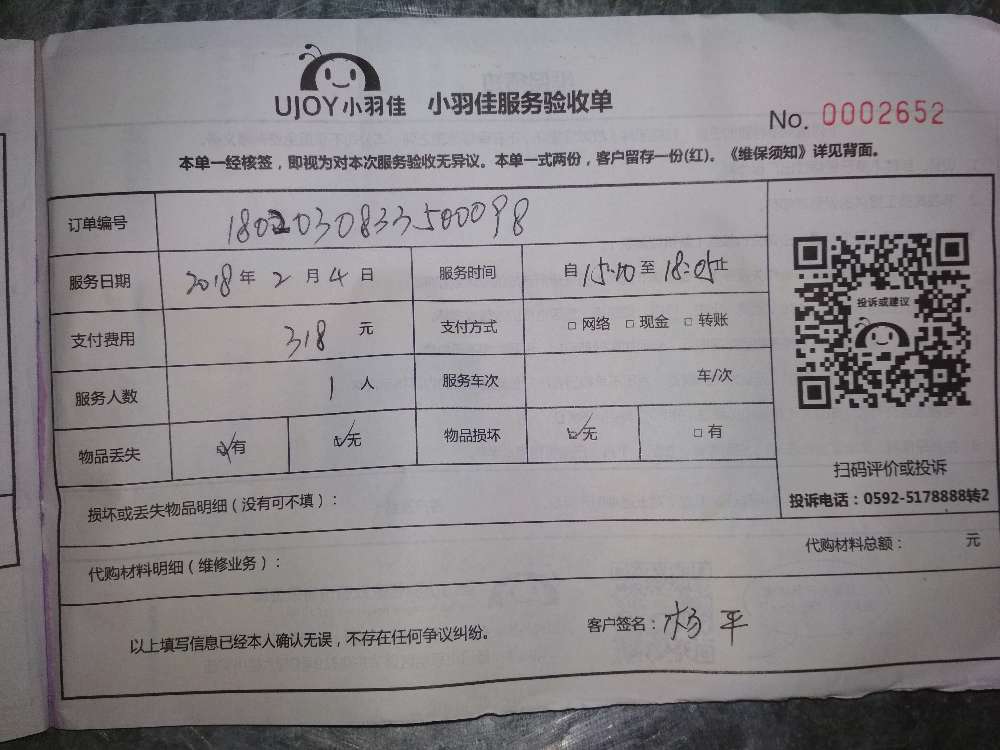 UJOY小羽佳 小羽佳服务验收单
No. 0002652
本单一经核签，即视为对本次服务验收无异议。本单一式两份，客户留存一份(红)。《维保须知》详见背面。
订单编号 180203083350009８
服务日期 2018年2月4日 服务时间 自15:10至18:05止
投诉或建议
支付费用 318元 支付方式 □网络 □现金 □转账
服务人数 1人 服务车次 车/次
物品丢失 ☑有 ☑无 物品损坏 ☑无 □有
扫码评价或投诉
投诉电话：0592-5178888转2
损坏或丢失物品明细（没有可不填）：
代购材料明细（维修业务）： 代购材料总额： 元
以上填写信息已经本人确认无误，不存在任何争议纠纷。 客户签名：杨平